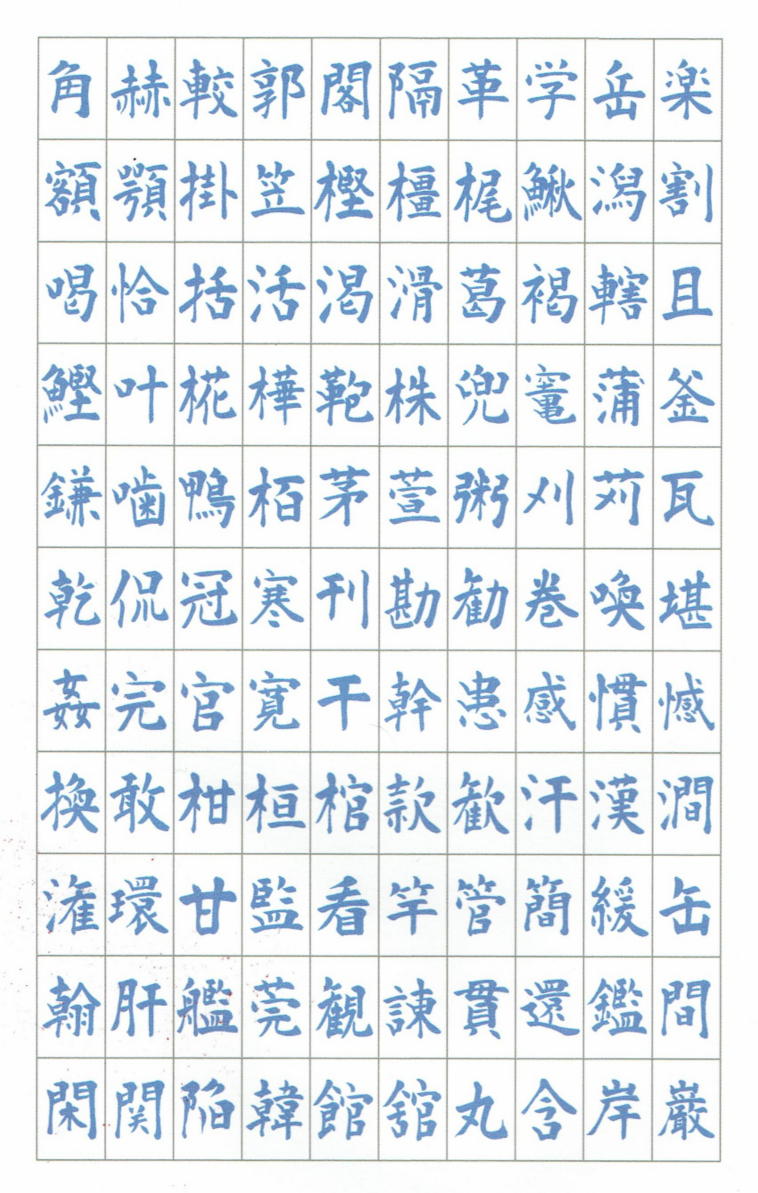 角赫較郭閣隔革学岳楽
額顎掛笠樫橿梶鰍潟割
喝恰括活渇滑葛褐轄且
鰹叶椛樺鞄株兜竈蒲釜
鎌噛鴨栢茅萱粥刈苅瓦
乾侃冠寒刊勘勧巻喚堪
姦完官寛干幹患感慣憾
換敢柑桓棺款歓汗漢澗
潅環甘監看竿管簡緩缶
翰肝艦莞観諌貫還鑑間
閑関陥韓館舘丸含岸巌